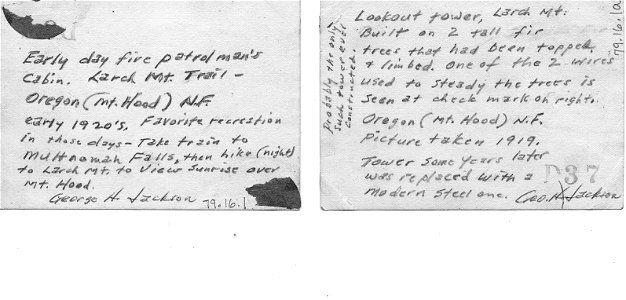 Early day fire patrolman's
cabin. Larch Mt. Trail -
Oregon (Mt. Hood) N.F.
early 1920's. Favorite recreation
in those days - Take train to
Multnomah Falls, then hike (night)
to Larch Mt. to view sunrise over
Mt. Hood.
George H. Jackson
79.16.1
Lookout tower, Larch Mt.
Built on 2 tall fir
trees that had been topped
& limbed. One of the 2 wires
used to steady the trees is
seen at check mark on right.
Oregon (Mt. Hood) N.F.
Picture taken 1919.
Tower some years later
was replaced with a
modern steel one. Geo. H. Jackson
Probably the only
such tower ever
constructed.
79.16.10
D37